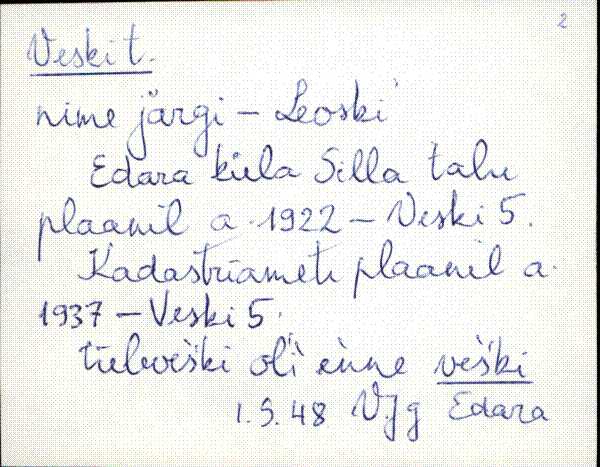 2
Veski t.
nime järgi – Leoski
Edara küla Silla talu
plaanil a. 1922 – Veski 5.
Kadastriameti plaanil a.
1937 – Veski 5.
tuluveški oĺi enne veški
1.S.48 VJg Edara